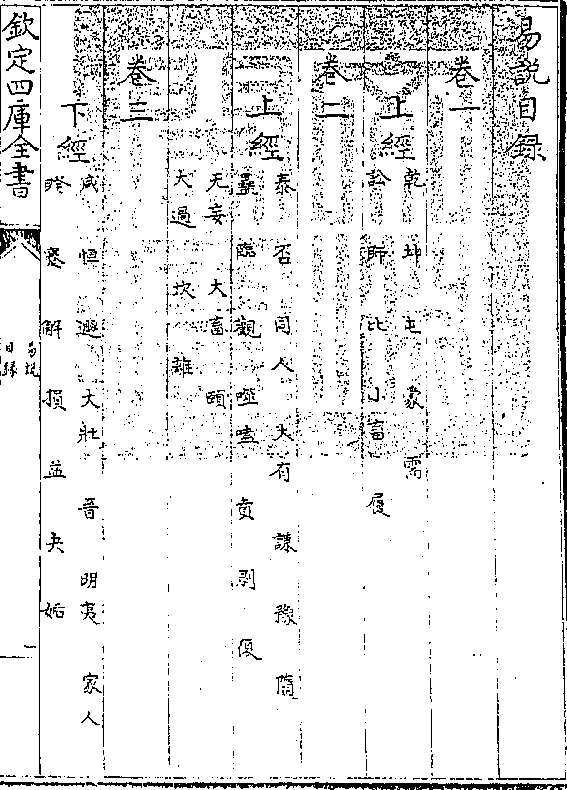 易說目録
卷一
上經
乾 坤 屯 蒙 需
訟 師 比 小畜 履
卷二
上經
泰 否 同人 大有 謙 豫 隨
蠱 臨 觀 噬嗑 賁 剥 復
无妄 大畜 頤
大過 坎 離
卷三
下經
咸 恒 遯 大壯 晉 明夷 家人
睽 蹇 解 損 益 夬 姤
欽定四庫全書
易說
目録
一